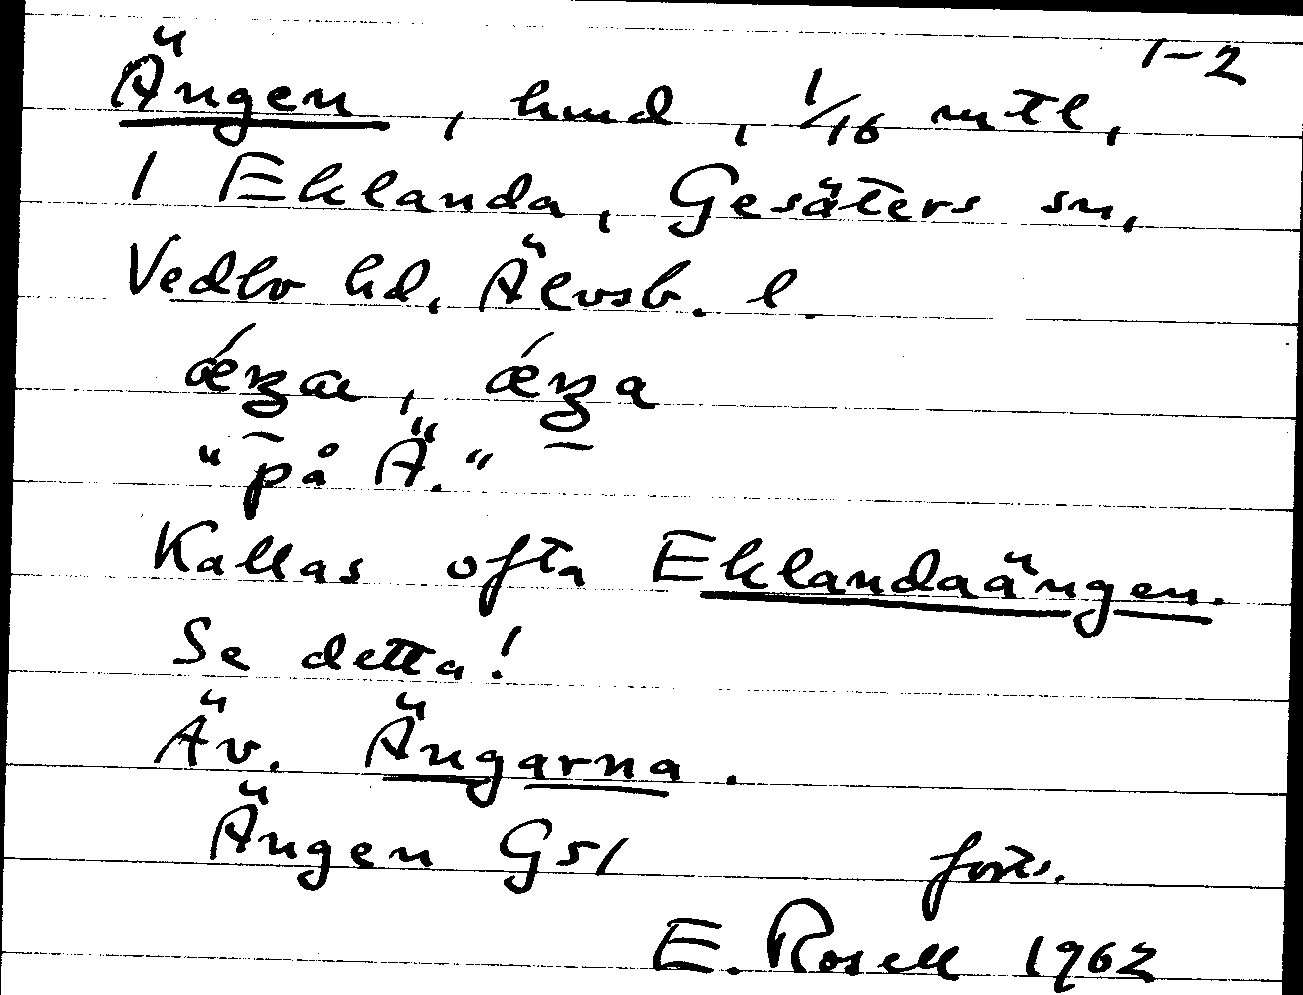 1-2
Ängen, hmd, 1/16 mtl,
1 Eklanda, Gesäters sn,
Vedbo hd, Älvsb. l.
"på Ä."
Kallas ofta Eklandaängen.
Se detta!
Äv. Ängarna.
Ängen GS1 forts.
E. Rosell 1962